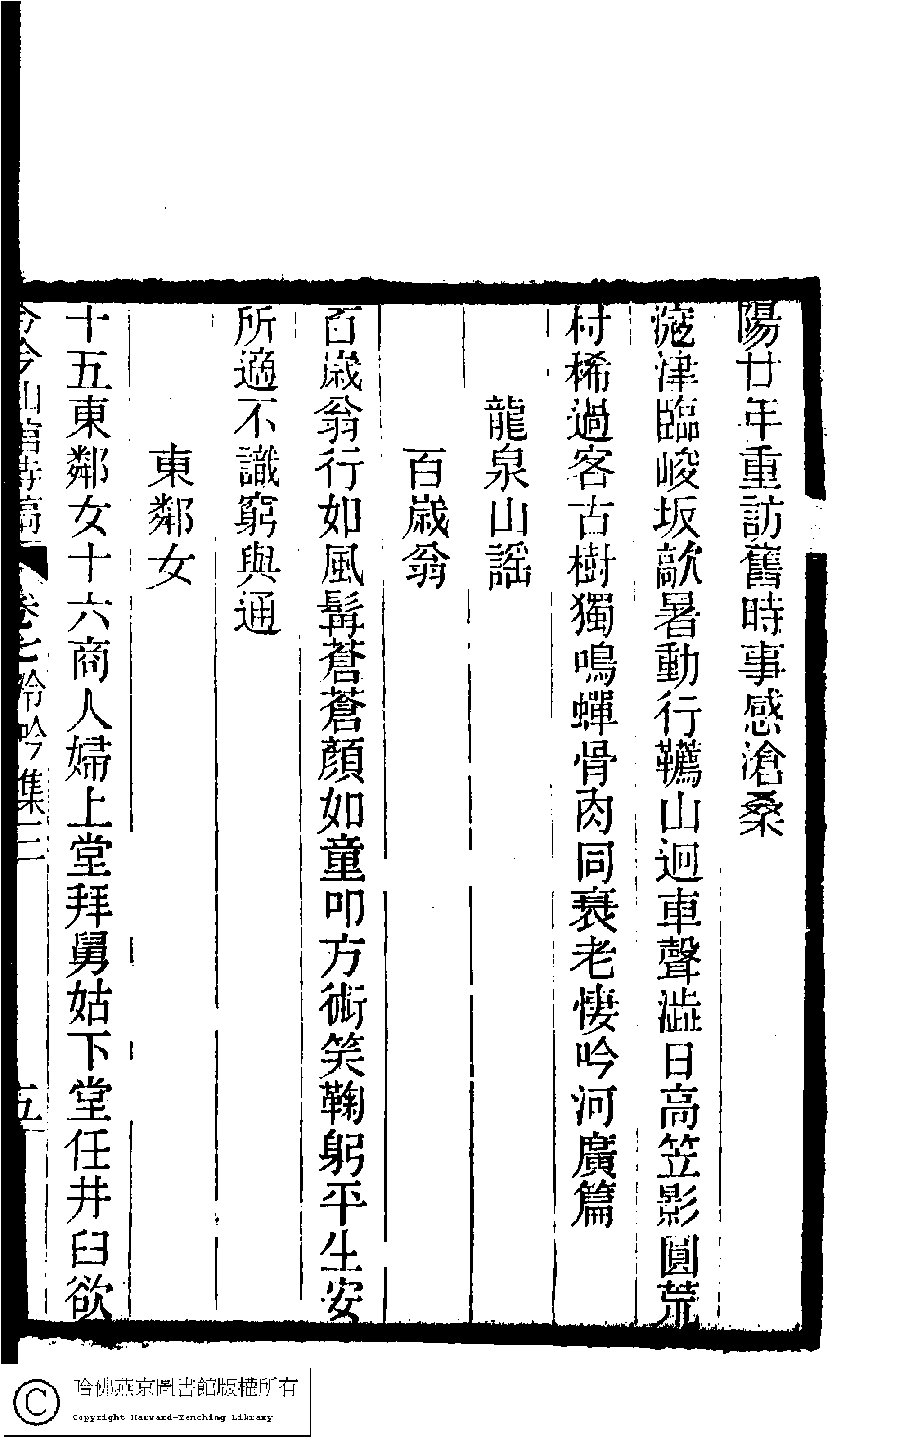 陽廿年重訪舊時事感滄桑
滱津臨峻坂歊暑動行韉山迴車聲澁日高笠影圓荒
村稀過客古樹獨鳴蟬骨肉同衰老悽吟河廣篇
龍泉山謠
百歲翁
百歲翁行如風髯蒼蒼顏如童叩方術笑鞠躬平生安
所適不識窮與通
東鄰女
十五東鄰女十六商人婦上堂拜舅姑下堂任井臼欲
山館詩稿 卷七 吟集三 五
哈佛燕京圖書館版權所有
Copyright Harvard-Yenching Library